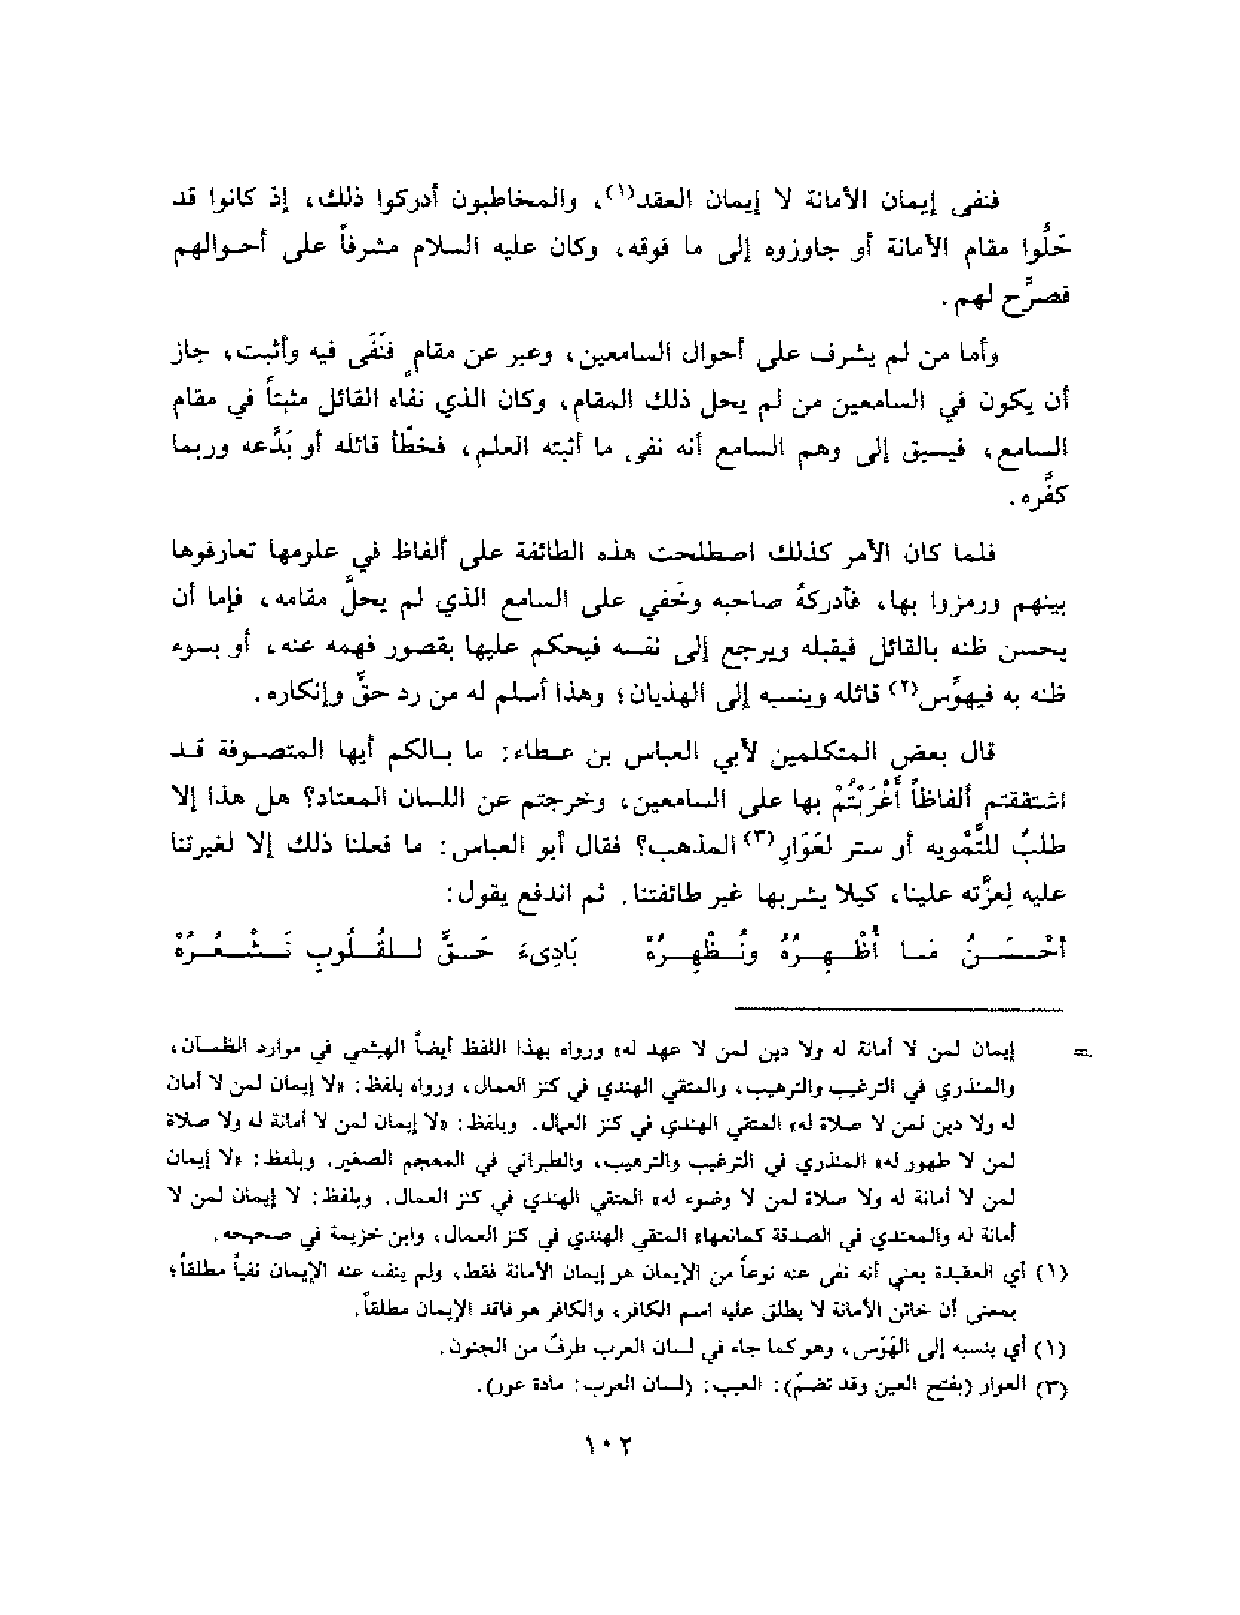 فنفى إيمان الأمانة لا إيمان العقد(١)، والمخاطبون أدركوا ذلك، إذ كانوا قد
حَلُّوا مقام الأمانة أو جاوزوه إلى ما فوقه، وكان عليه السلام مشرفاً على أحوالهم
فصرَّح لهم.
وأما من لم يشرف على أحوال السامعين، وعبر عن مقامٍ فنَفَى فيه وأثبت، جاز
أن يكون في السامعين من لم يحل ذلك المقام، وكان الذي نفاه القائل مثبتاً في مقام
السامع، فيسبق إلى وهم السامع أنه نفى ما أثبته العلم، فخطَّأ قائله أو بَدَّعه وربما
كفَّره.
فلما كان الأمر كذلك اصطلحت هذه الطائفة على ألفاظ في علومها تعارفوها
بينهم ورمزوا بها، فأدركهُ صاحبه وخَفي على السامع الذي لم يحلَّ مقامه، فإما أن
يحسن ظنه بالقائل فيقبله ويرجع إلى نفسه فيحكم عليها بقصور فهمه عنه، أو بسوء
ظنه به فيهوِّس(٢) قائله وينسبه إلى الهذيان؛ وهذا أسلم له من رد حقٍّ وإنكاره.
قال بعض المتكلمين لأبي العباس بن عطاء: ما بالكم أيها المتصوفة قد
اشتققتم ألفاظاً أَغْرَبْتُمْ بها على السامعين، وخرجتم عن اللسان المعتاد؟ هل هذا إلا
طلبٌ للتَّمْويه أو ستر لعَوَارِ(٣) المذهب؟ فقال أبو العباس: ما فعلنا ذلك إلا لغيرتنا
عليه لِعزَّته علينا، كيلا يشربها غير طائفتنا. ثم اندفع يقول:
أَحْسَنُ مَا أُظْهِرُهُ ونُظْهِرُهْ بَادِىءَ حَقٍّ لِلقُلُوبِ نَشْعُرُهْ
= إيمان لمن لا أمانة له ولا دين لمن لا عهد له» ورواه بهذا اللفظ أيضاً الهيثمي في موارد الظمآن،
والمنذري في الترغيب والترهيب، والمتقي الهندي في كنز العمال، ورواه بلفظ: «لا إيمان لمن لا أمان
له ولا دين لمن لا صلاة له» المتقي الهندي في كنز العمال. وبلفظ: «لا إيمان لمن لا أمانة له ولا صلاة
لمن لا طهور له» المنذري في الترغيب والترهيب، والطبراني في المعجم الصغير. وبلفظ: «لا إيمان
لمن لا أمانة له ولا صلاة لمن لا وضوء له» المتقي الهندي في كنز العمال. وبلفظ: لا إيمان لمن لا
أمانة له والمعتدي في الصدقة كمانعها» المتقي الهندي في كنز العمال، وابن خزيمة في صحيحه.
(١) أي العقيدة يعني أنه نفى عنه نوعاً من الإيمان هو إيمان الأمانة فقط، ولم ينف عنه الإيمان نفياً مطلقاً؛
بمعنى أن خائن الأمانة لا يطلق عليه اسم الكافر، والكافر هو فاقد الإيمان مطلقاً.
(١) أي ينسبه إلى الهَوَس، وهو كما جاء في لسان العرب طرفٌ من الجنون.
(٣) العوار (بفتح العين وقد تضمّ): العيب: (لسان العرب: مادة عور).
١٠٢